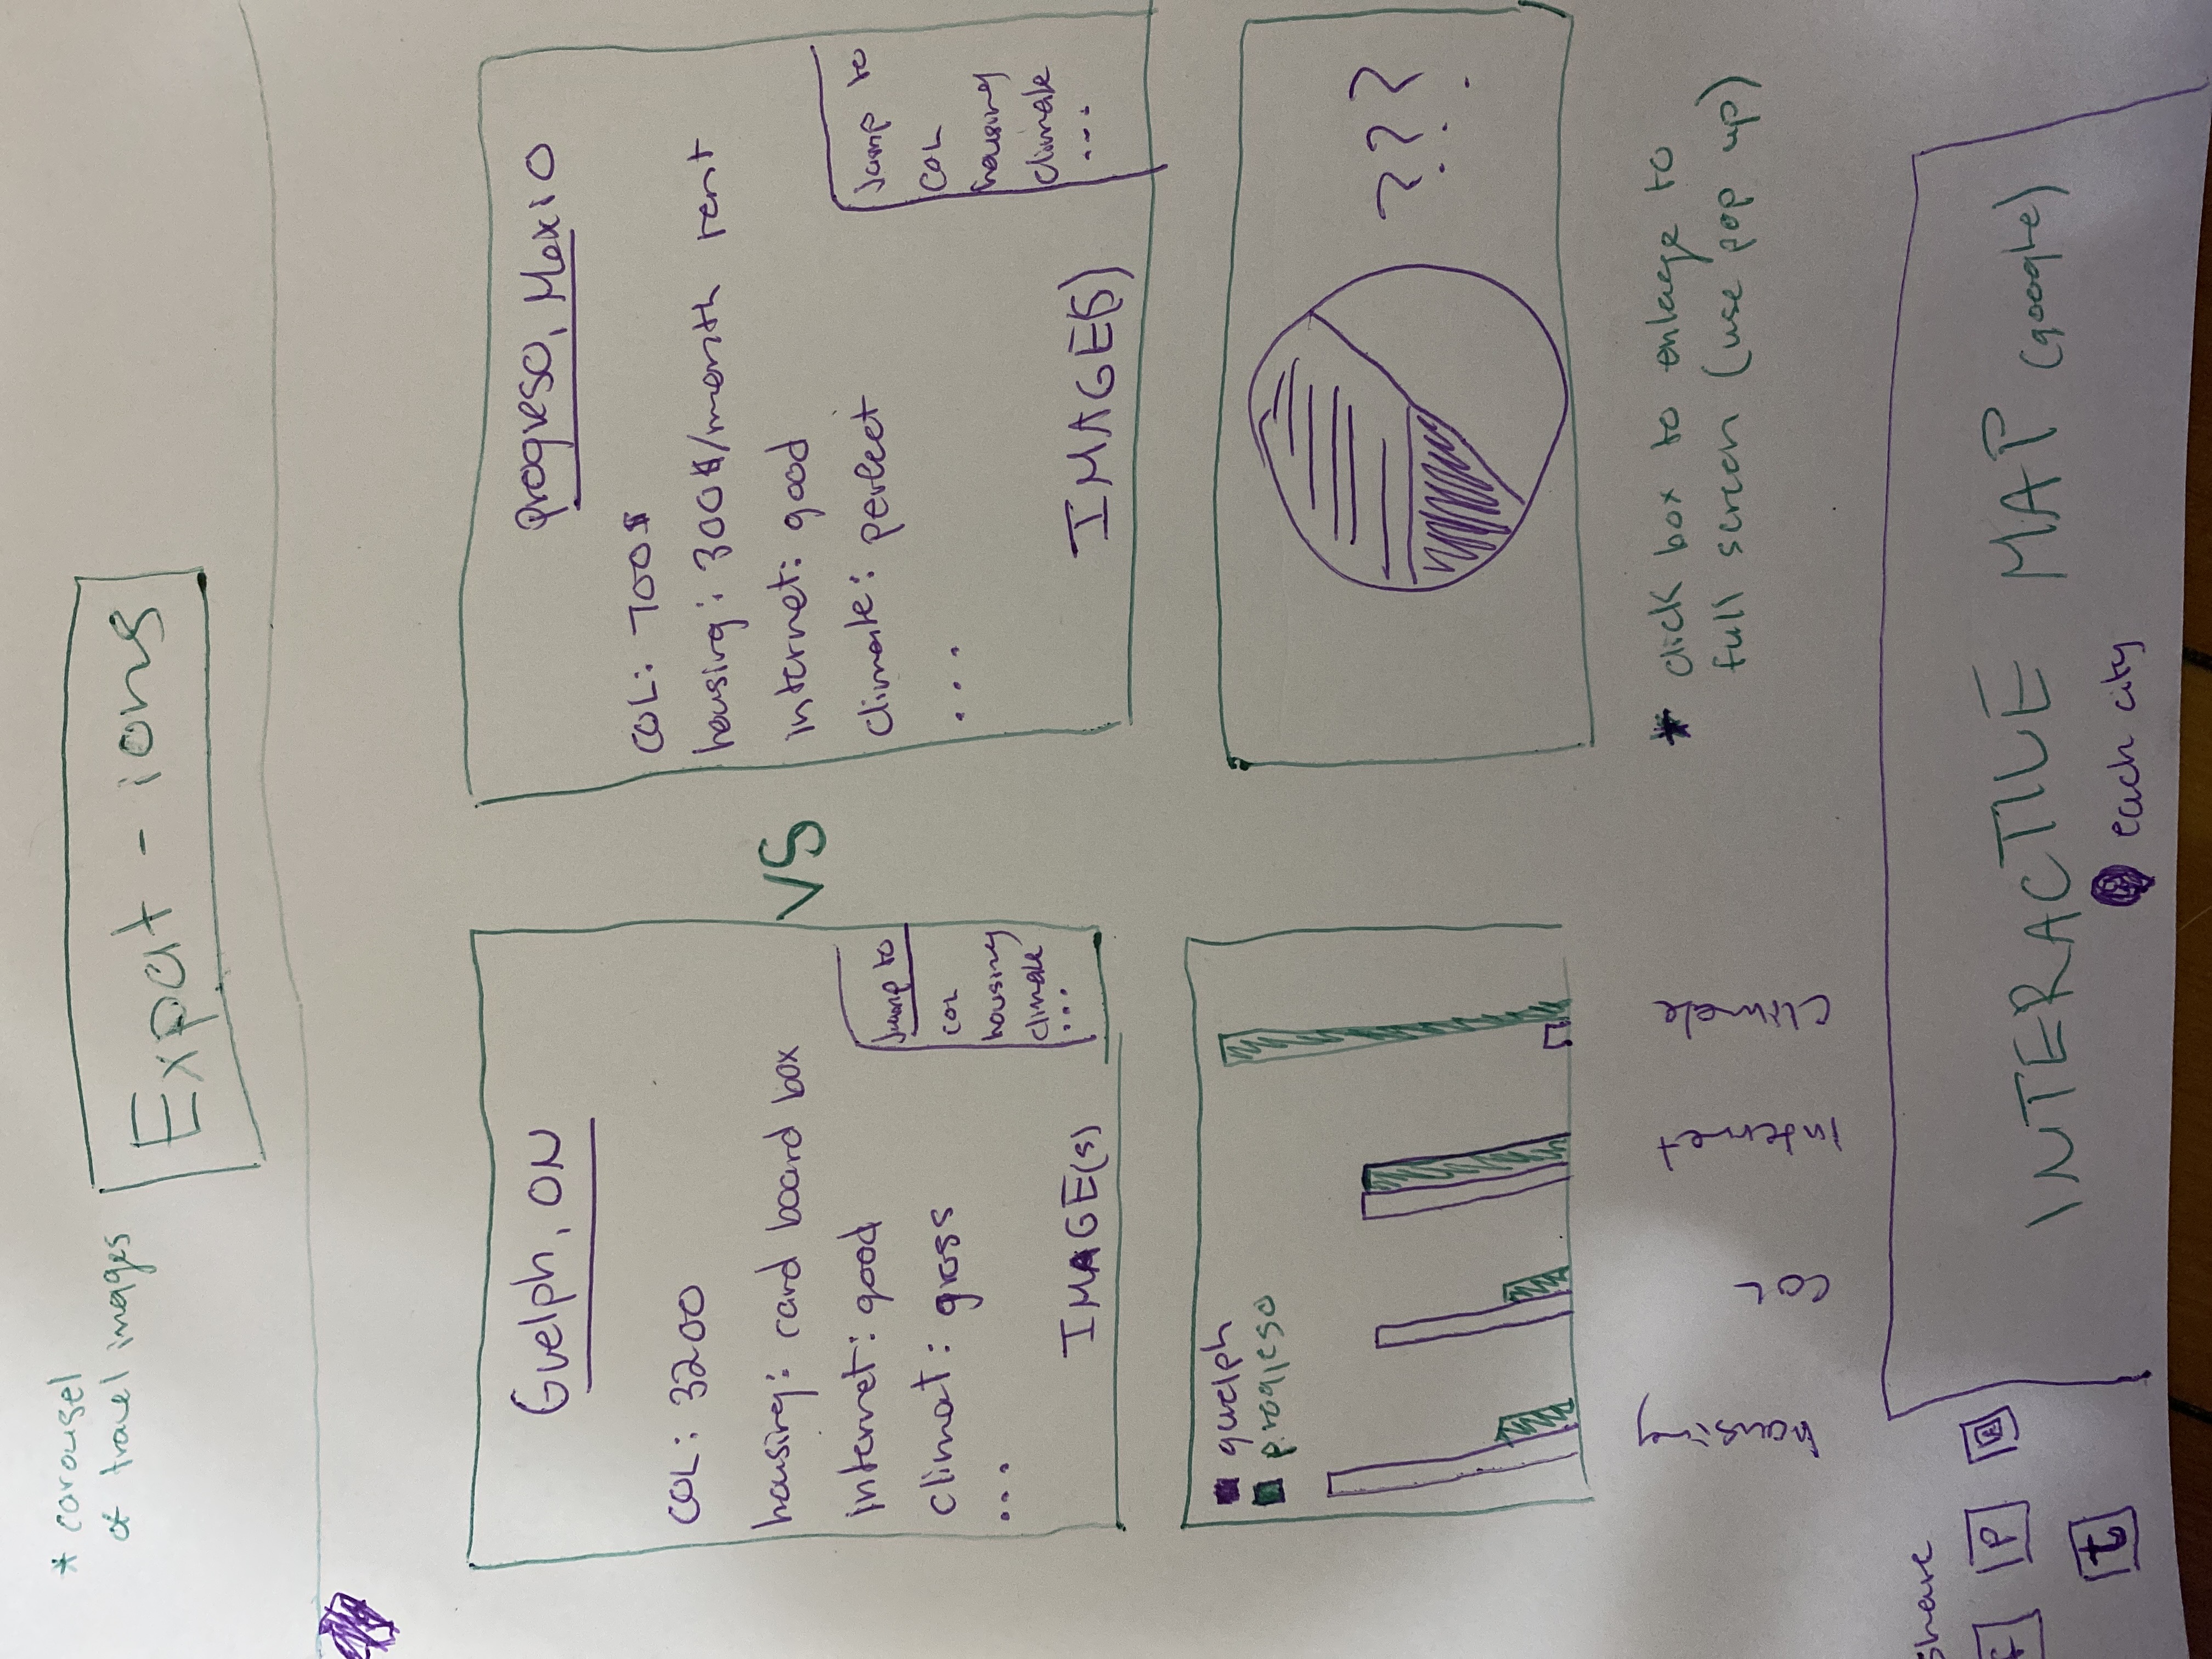 * carousel
of travel images
Expat - ions
Guelph, ON
COL: 3200
housing: card board box
internet: good
climat: gross
...
IMAGE(s)
Jump to
COL
housing
climate
...
VS
progreso, Mexio
COL: 700$
housing: 300$/month rent
internet: good
climate: perfect
...
IMAGE(S)
Jump to
COL
housing
climate
...
guelph
progreso
housing
COL
Internet
Climate
???
* click box to enlarge to
full screen (use pop up)
share
f
P
t
INTERACTIVE MAP (google)
each city